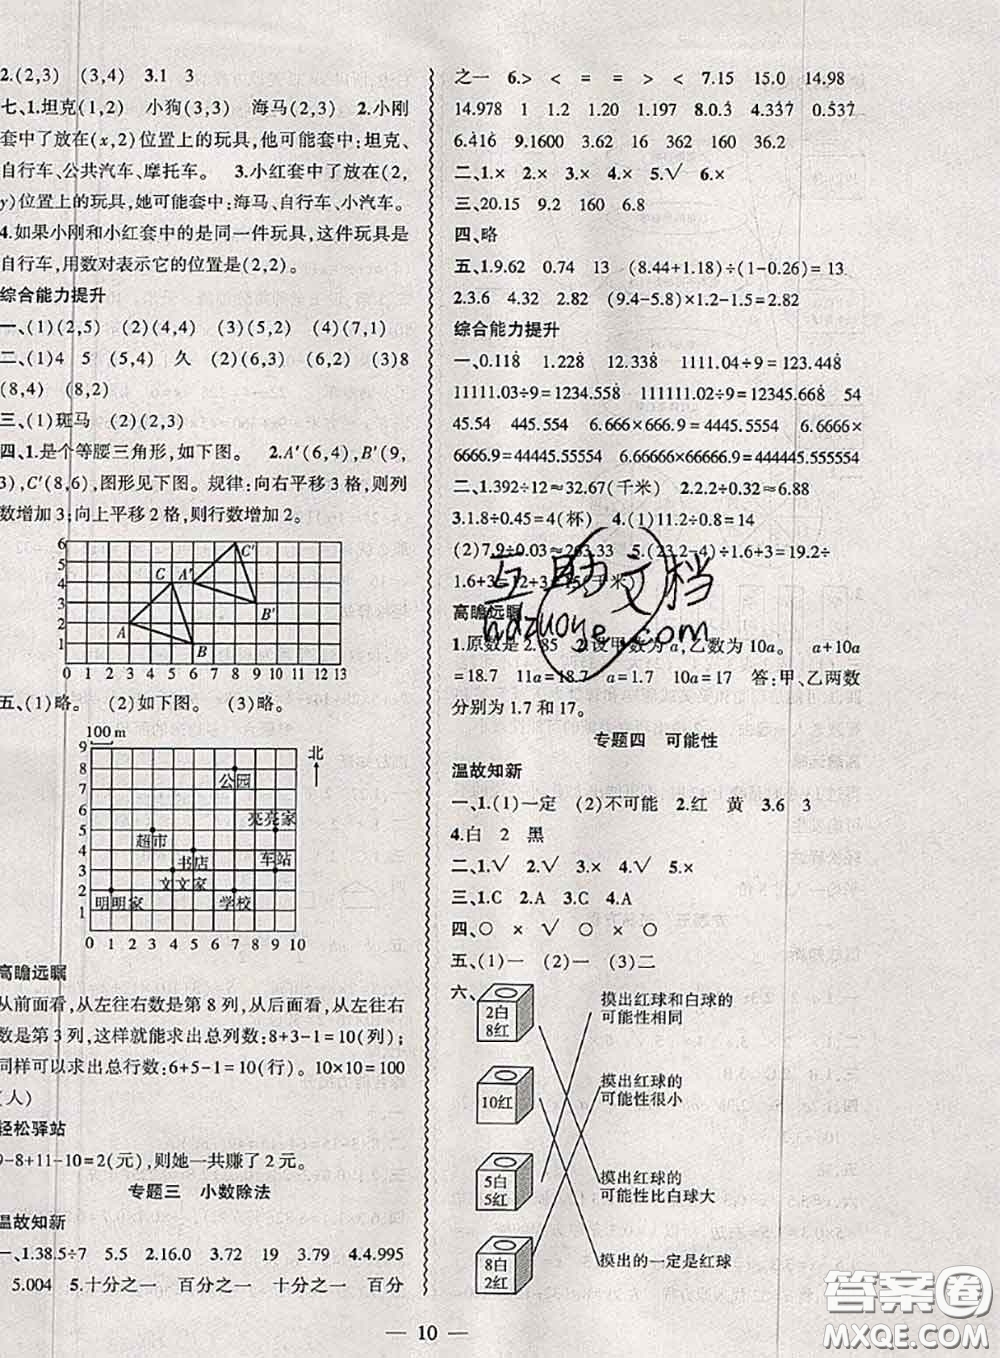 2.(2,3)　(3,4)　3.1　3
七、1.坦克(1,2)　小狗(3,3)　海马(2,3)　2.小刚
套中了放在(x,2)位置上的玩具,他可能套中:坦克、
自行车、公共汽车、摩托车。　3.小红套中了放在(2,
y)位置上的玩具,她可能套中:海马、自行车、小汽车。
4.如果小刚和小红套中的是同一件玩具,这件玩具是
自行车,用数对表示它的位置是(2,2)。
综合能力提升
一、(1)(2,5)　(2)(4,4)　(3)(5,2)　(4)(7,1)
二、(1)4　5　(5,4)　久　(2)(6,3)　(6,2)　(3)8
(8,4)　(8,2)
三、(1)斑马　(2)(2,3)
四、1.是个等腰三角形,如下图。　2.A′(6,4),B′(9,
3),C′(8,6),图形见下图。规律:向右平移3格,则列
数增加3;向上平移2格,则行数增加2。
6
5
4
3
2
1
C A′ C′
B′
A
B
0 1 2 3 4 5 6 7 8 9 10 11 12 13
五、(1)略。　(2)如下图。　(3)略。
100 m
北
9
8
7
6
5
4
3
2
1
公园
亮亮家
超市
书店
车站
文文家
明明家
学校
0 1 2 3 4 5 6 7 8 9 10
高瞻远瞩
从前面看,从左往右数是第8列,从后面看,从左往右
数是第3列,这样就能求出总列数:8+3-1=10(列);
同样可以求出总行数:6+5-1=10(行)　10×10=100
(人)
轻松驿站
9-8+11-10=2(元),则她一共赚了2元。
专题三　小数除法
温故知新
一、1.38.5÷7　5.5　2.16.0　3.72　19　3.79　4.4.995
5.004　5.十分之一　百分之一　十分之一　百分
之一　6.>　<　=　=　>　<　7.15　15.0　14.98
14.978　1　1.2　1.20　1.197　8.0.3̇　4.3̇3̇7̇　0.5̇37̇
6.4̇16̇　9.1600　3.62　36　362　160　36.2
二、1.×　2.×　3.×　4.×　5.√　6.×
三、20.15　9.2　160　6.8
四、略
五、1.9.62　0.74　13　(8.44+1.18)÷(1-0.26)=13
2.3.6　4.32　2.82　(9.4-5.8)×1.2-1.5=2.82
综合能力提升
一、0.118̇　1.228̇　12.338̇　1111.04÷9=123.448̇
11111.03÷9=1234.558̇　111111.02÷9=12345.668̇　54
45.54　445.554　6.6×66.6=443.556　6.66×666.6=
4439.556　66.6×6666.6=444445.5554　
6666.6×66666.6=444435555.56　
二、1.392÷12≈32.67(千米)　2.2.2÷0.32≈6.88
3.1.8÷0.45=4(杯)　4.(1)11.2÷0.8=14
(2)7.9÷0.03≈263.33　5.(23.2-4)÷1.6+3=19.2÷
1.6+3=12+3=15(千米)
高瞻远瞩
1.原数是2.85　2.设甲数为a,乙数为10a。　a+10a
=18.7　11a=18.7　a=1.7　10a=17　答:甲、乙两数
分别为1.7和17。
专题四　可能性
温故知新
一、1.(1)一定　(2)不可能　2.红　黄　3.6　3
4.白　2　黑
二、1.√　2.√　3.×　4.√　5.×
三、1.C　2.A　3.C　4.A
四、○　×　√　○　×　○
五、(1)一　(2)一　(3)二
六、
2白
8红
摸出红球和白球的
可能性相同
10红
摸出红球的
可能性很小
5白
5红
摸出红球的
可能性比白球大
8白
2红
摸出的一定是红球
互助文档
hdzuoye.com
— 10 —
答案圈
MXQE.COM